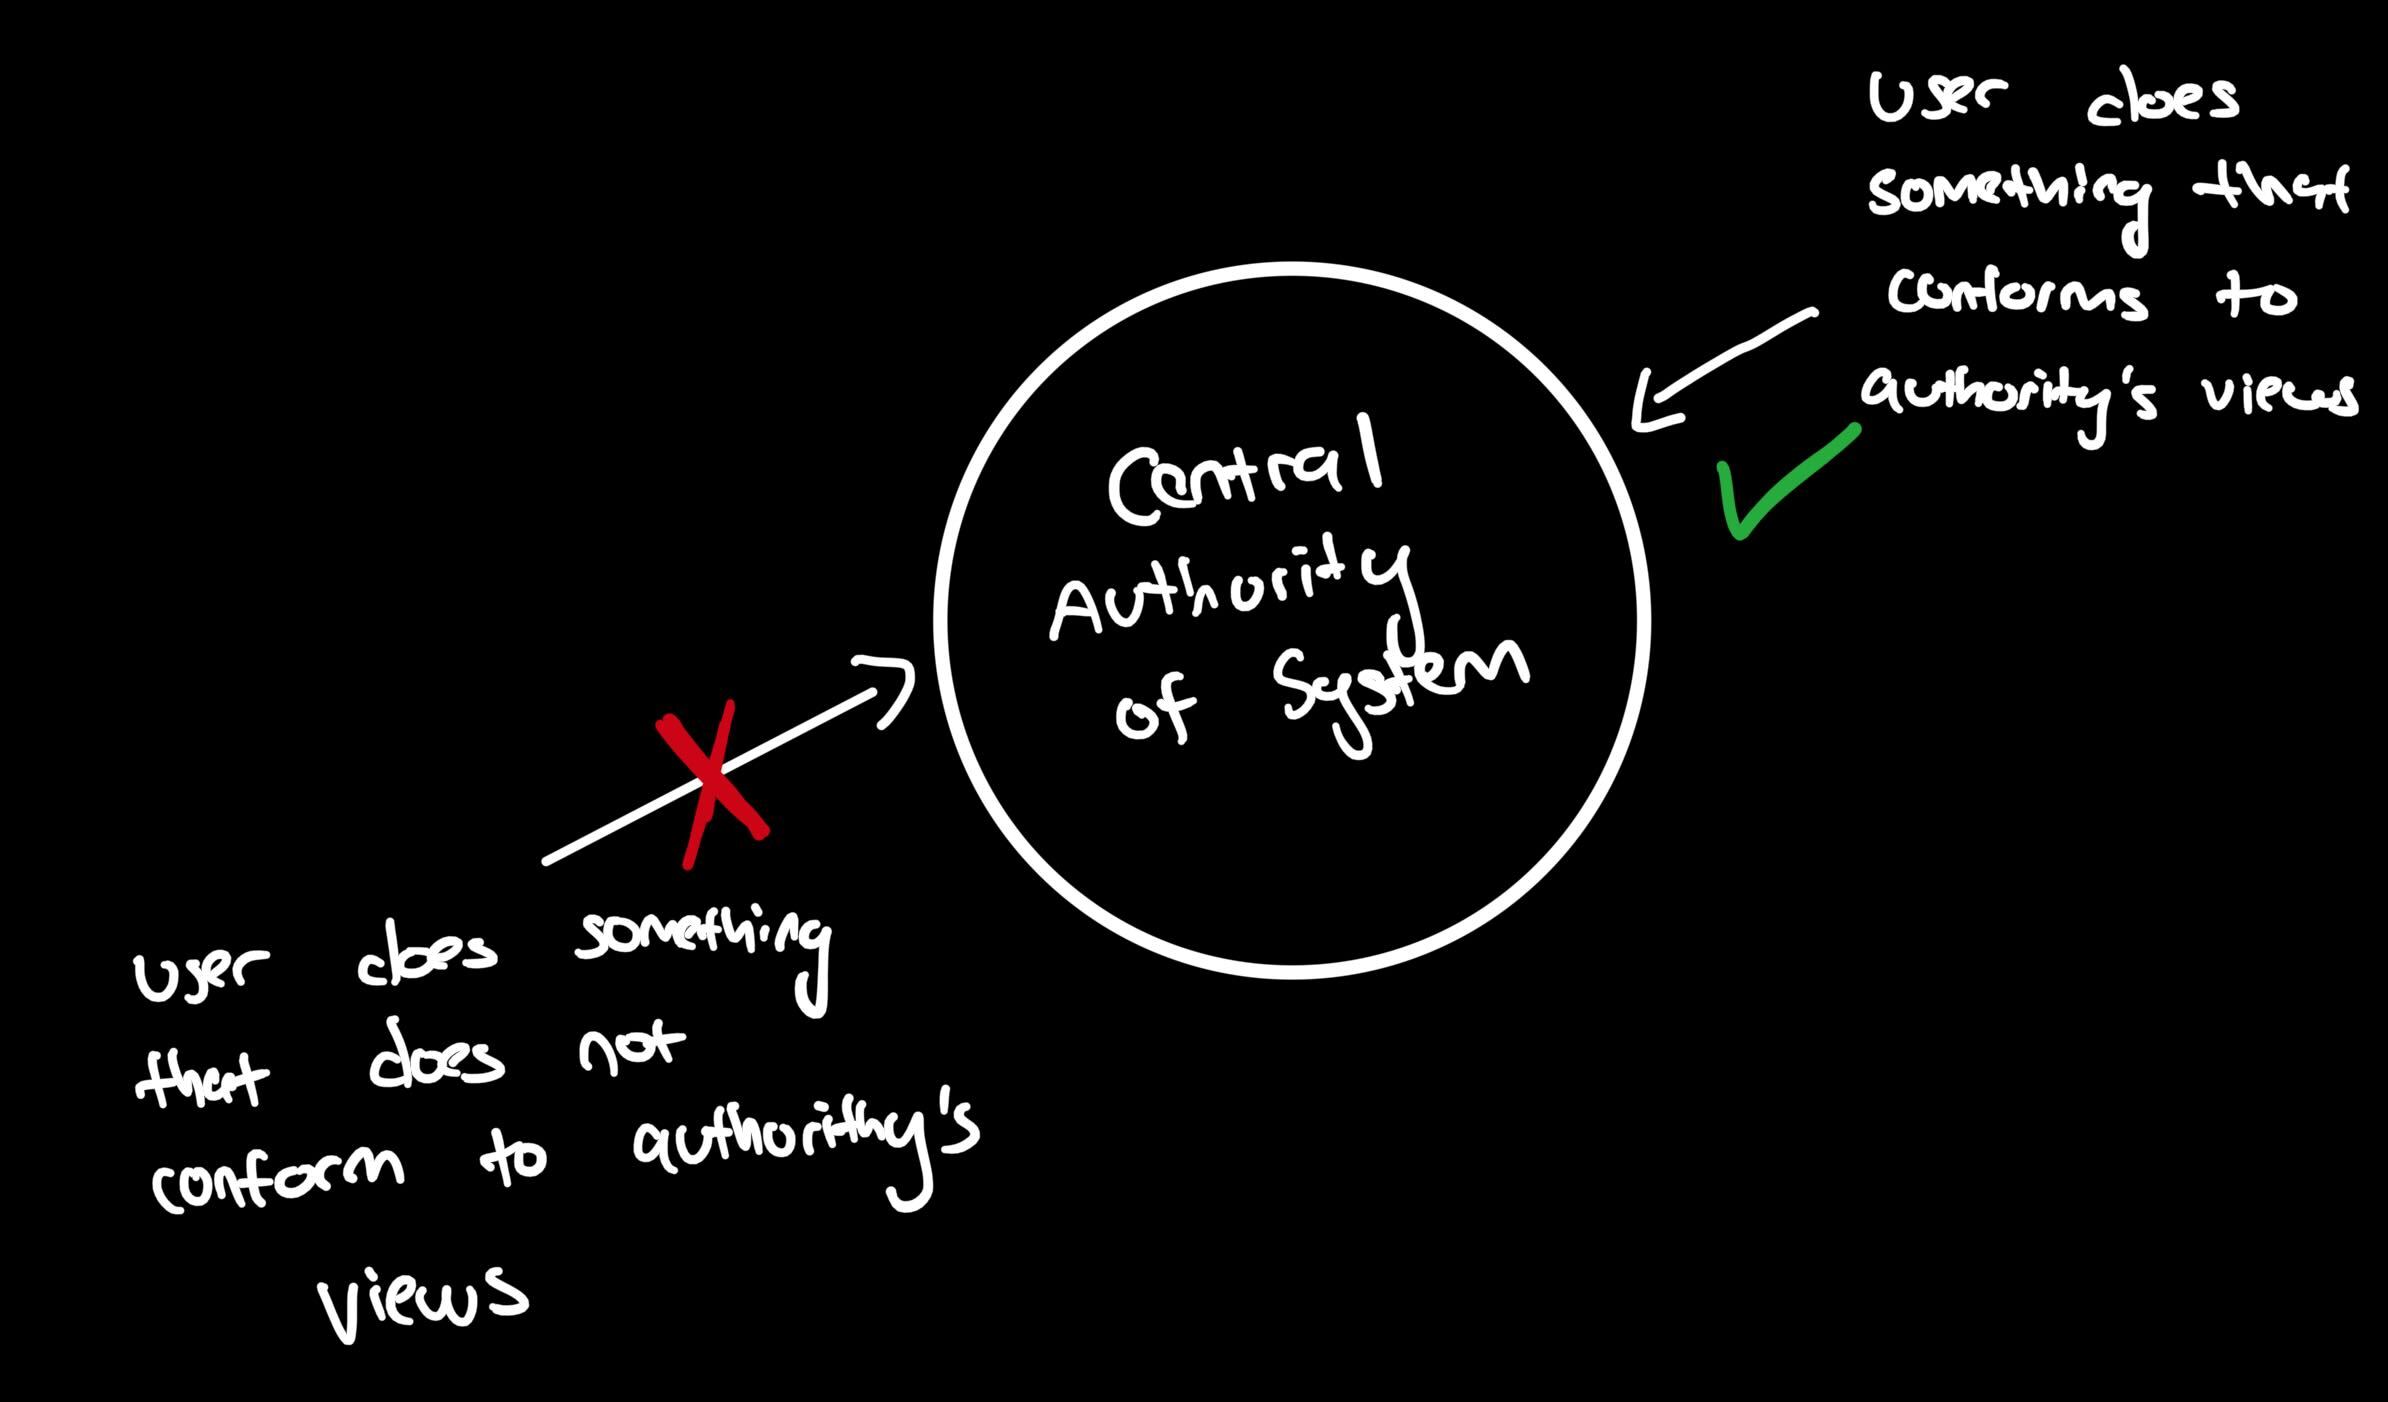 User does
something that
conforms to
authority's views
Central
Authority
of System
User does something
that does not
conform to authorithy's
views